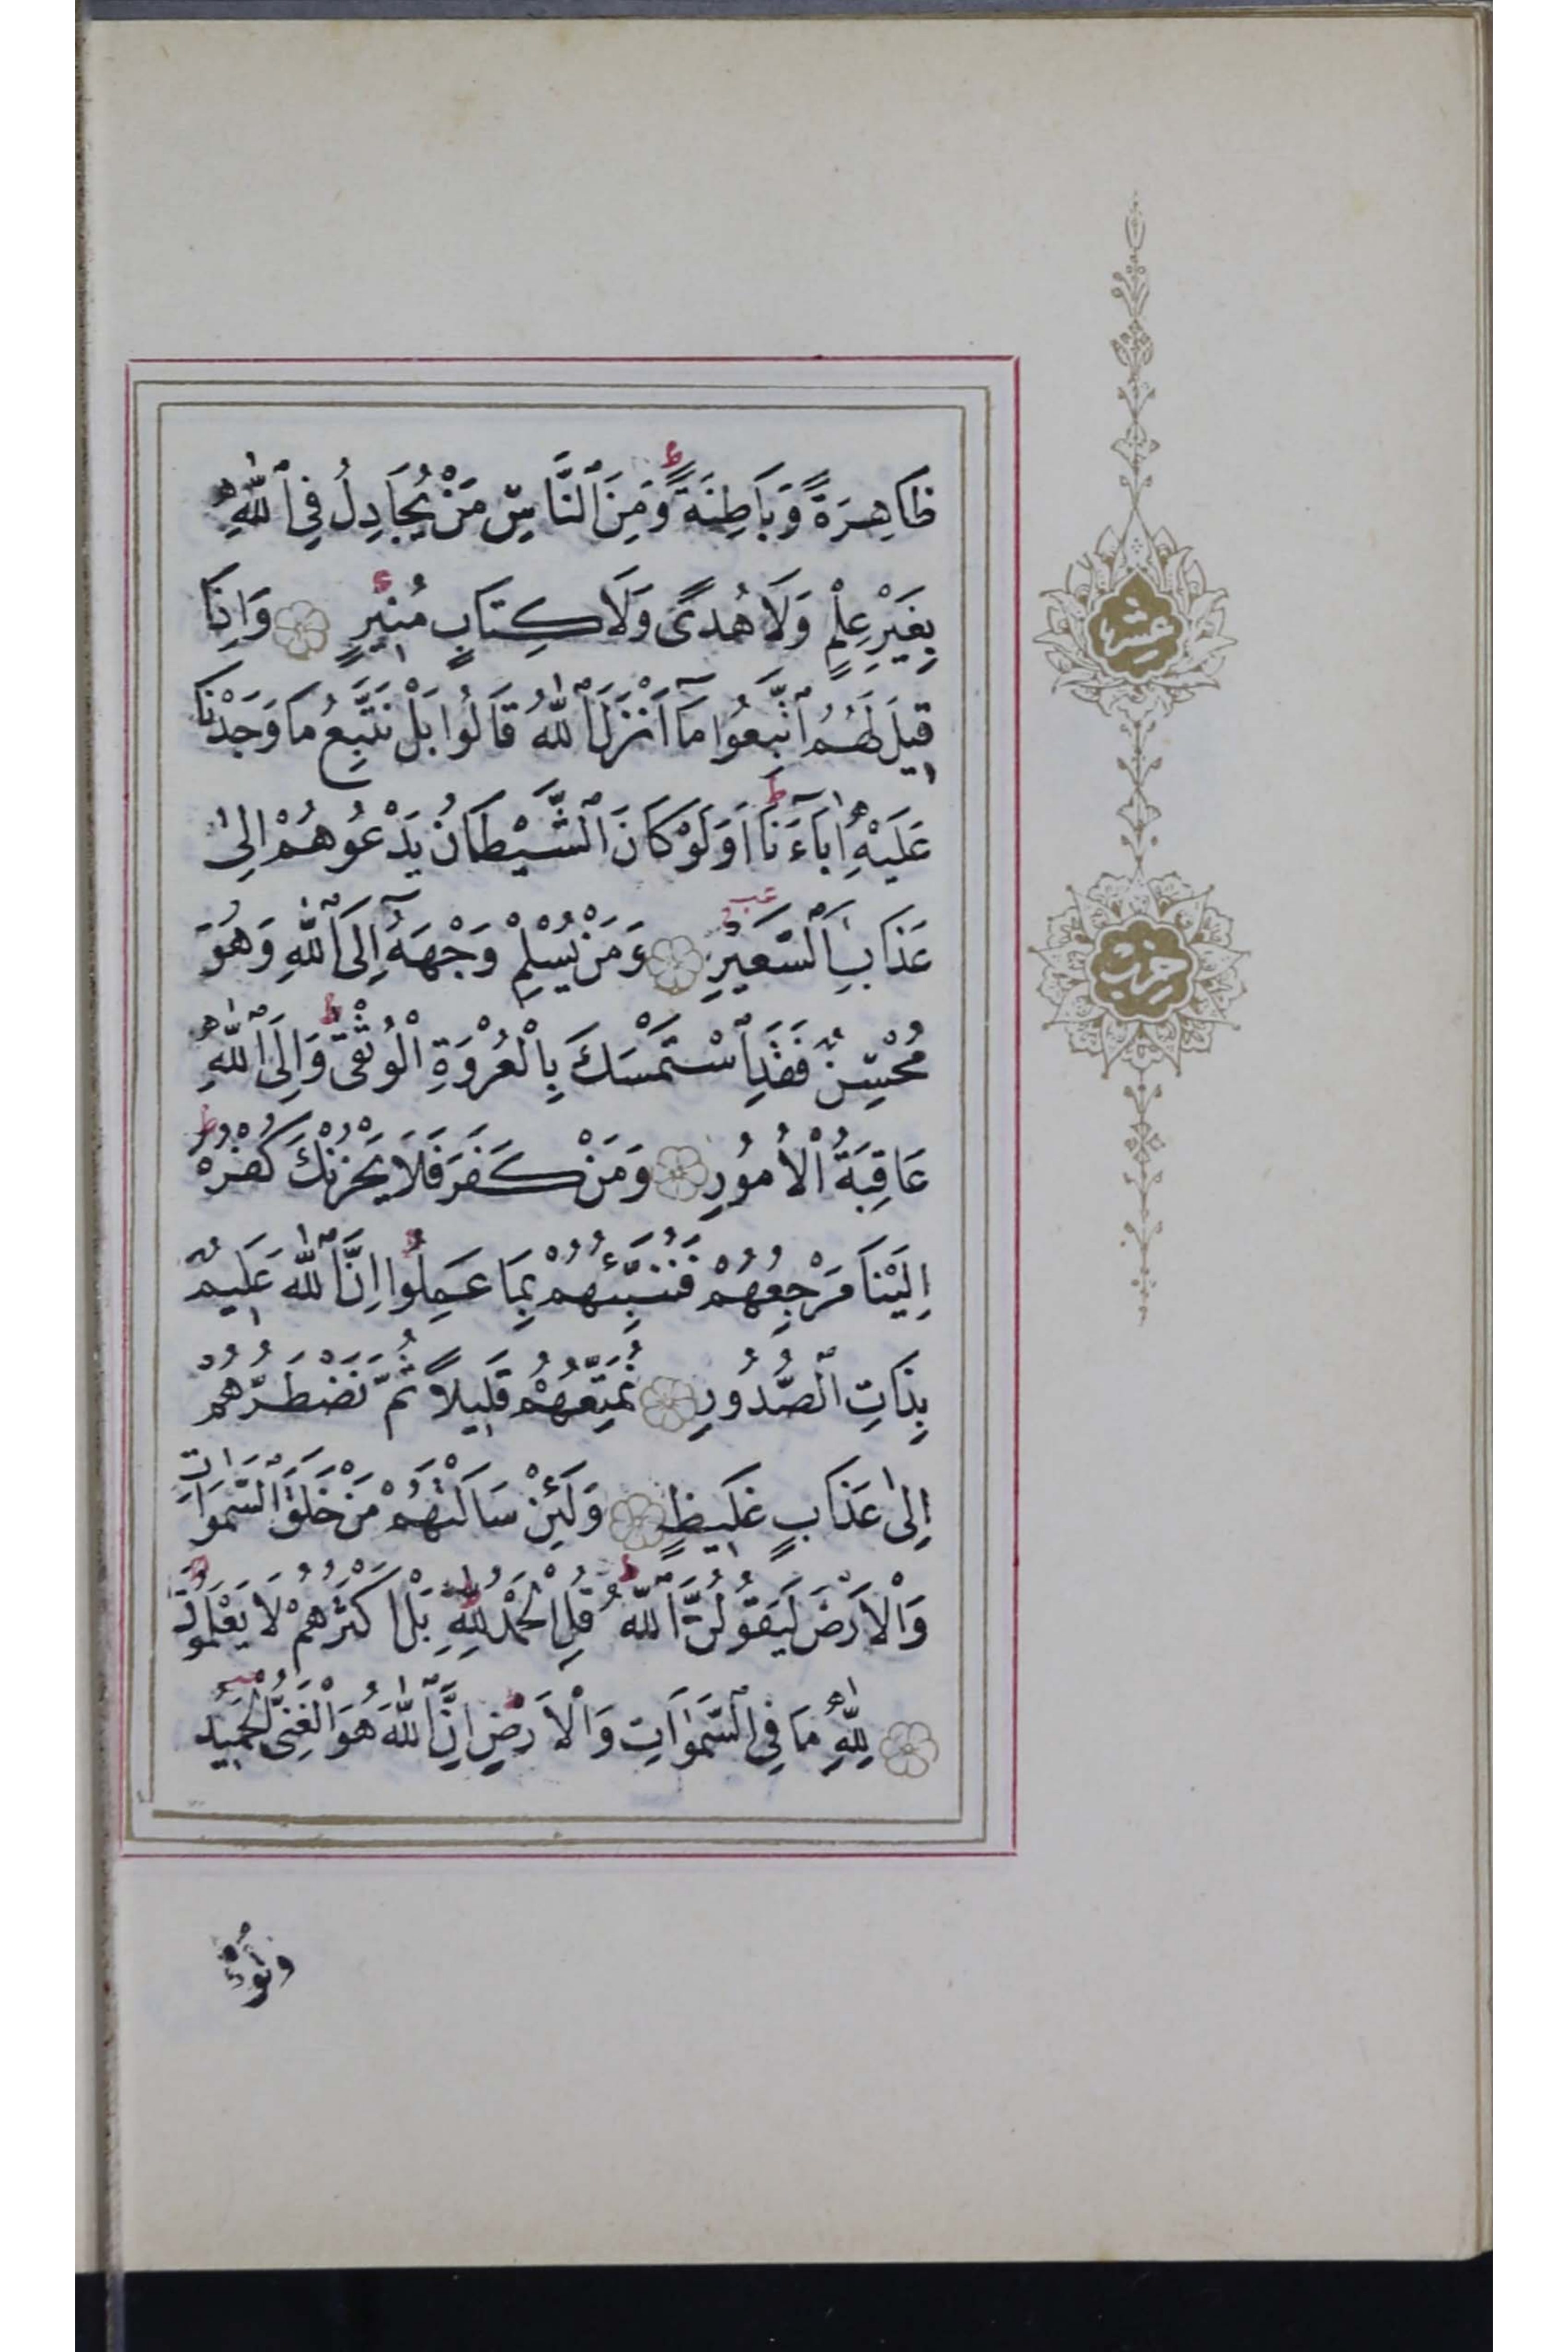 ظَاهِرَةً وَبَاطِنَةً وَمِنَ ٱلنَّاسِ مَنْ يُجَادِلُ فِي ٱللّٰهِ
بِغَيْرِ عِلْمٍ وَلَا هُدًى وَلَا كِتَابٍ مُنِيرٍ وَاِذَا
قِيلَ لَهُمُ ٱتَّبِعُوا مَآ اَنْزَلَ ٱللّٰهُ قَالُوا بَلْ نَتَّبِعُ مَا وَجَدْنَا
عَلَيْهِ اٰبَآءَنَا اَوَلَوْ كَانَ ٱلشَّيْطَانُ يَدْعُوهُمْ اِلٰى
عَذَابِ ٱلسَّعِيرِ وَمَنْ يُسْلِمْ وَجْهَهُٓ اِلَى ٱللّٰهِ وَهُوَ
مُحْسِنٌ فَقَدِ ٱسْتَمْسَكَ بِالْعُرْوَةِ الْوُثْقٰى وَاِلَى ٱللّٰهِ
عَاقِبَةُ الْاُمُورِ وَمَنْ كَفَرَ فَلَا يَحْزُنْكَ كُفْرُهُ
اِلَيْنَا مَرْجِعُهُمْ فَنُنَبِّئُهُمْ بِمَا عَمِلُوا اِنَّ ٱللّٰهَ عَلِيمٌ
بِذَاتِ ٱلصُّدُورِ نُمَتِّعُهُمْ قَلِيلًا ثُمَّ نَضْطَرُّهُمْ
اِلٰى عَذَابٍ غَلِيظٍ وَلَئِنْ سَاَلْتَهُمْ مَنْ خَلَقَ ٱلسَّمٰوَاتِ
وَالْاَرْضَ لَيَقُولُنَّ ٱللّٰهُ قُلِ الْحَمْدُ لِلّٰهِ بَلْ اَكْثَرُهُمْ لَا يَعْلَمُونَ
لِلّٰهِ مَا فِي ٱلسَّمٰوَاتِ وَالْاَرْضِ اِنَّ ٱللّٰهَ هُوَ الْغَنِيُّ الْحَمِيدُ
عشر
حزب